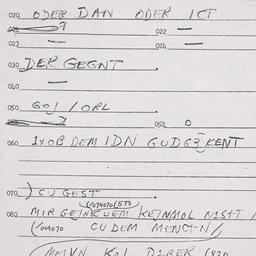 020 ODER DAN ODER ICT
022 —
023 — 024 —
030 DER GEGNT
040 —
050 GOJ / ORL
052 0
060 IX OB DEM IDN GUDGƷ KENT
070 ) CU GEST
(/074070(573
080 MIR GEJN KUEM KEJNMOL NISHT /
(/004070 CU DEM MENCN /
KOJ DIBER (820